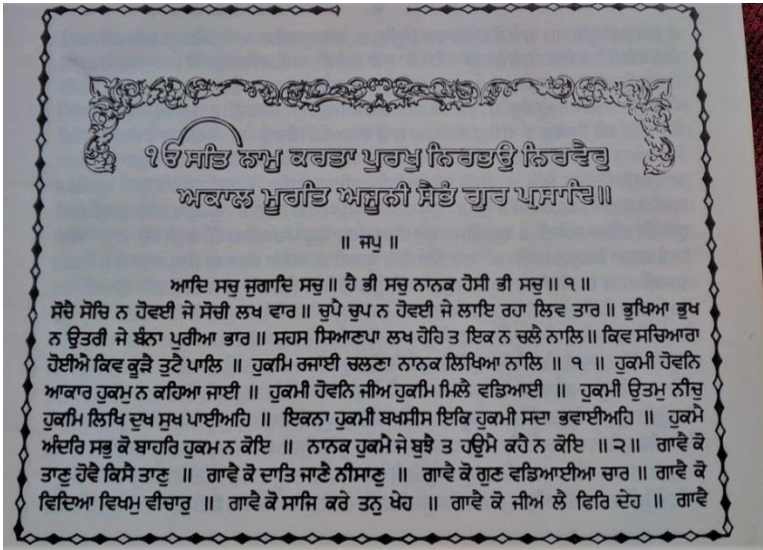 ੴ ਸਤਿ ਨਾਮੁ ਕਰਤਾ ਪੁਰਖੁ ਨਿਰਭਉ ਨਿਰਵੈਰੁ
ਅਕਾਲ ਮੂਰਤਿ ਅਜੂਨੀ ਸੈਭੰ ਗੁਰ ਪ੍ਰਸਾਦਿ॥
॥ ਜਪੁ ॥
ਆਦਿ ਸਚੁ ਜੁਗਾਦਿ ਸਚੁ॥ ਹੈ ਭੀ ਸਚੁ ਨਾਨਕ ਹੋਸੀ ਭੀ ਸਚੁ॥ ੧॥
ਸੋਚੈ ਸੋਚਿ ਨ ਹੋਵਈ ਜੇ ਸੋਚੀ ਲਖ ਵਾਰ॥ ਚੁਪੈ ਚੁਪ ਨ ਹੋਵਈ ਜੇ ਲਾਇ ਰਹਾ ਲਿਵ ਤਾਰ॥ ਭੁਖਿਆ ਭੁਖ
ਨ ਉਤਰੀ ਜੇ ਬੰਨਾ ਪੁਰੀਆ ਭਾਰ॥ ਸਹਸ ਸਿਆਣਪਾ ਲਖ ਹੋਹਿ ਤ ਇਕ ਨ ਚਲੈ ਨਾਲਿ॥ ਕਿਵ ਸਚਿਆਰਾ
ਹੋਈਐ ਕਿਵ ਕੂੜੈ ਤੁਟੈ ਪਾਲਿ ॥ ਹੁਕਮਿ ਰਜਾਈ ਚਲਣਾ ਨਾਨਕ ਲਿਖਿਆ ਨਾਲਿ ॥ ੧ ॥ ਹੁਕਮੀ ਹੋਵਨਿ
ਆਕਾਰ ਹੁਕਮੁ ਨ ਕਹਿਆ ਜਾਈ ॥ ਹੁਕਮੀ ਹੋਵਨਿ ਜੀਅ ਹੁਕਮਿ ਮਿਲੈ ਵਡਿਆਈ ॥ ਹੁਕਮੀ ਉਤਮੁ ਨੀਚੁ
ਹੁਕਮਿ ਲਿਖਿ ਦੁਖ ਸੁਖ ਪਾਈਅਹਿ ॥ ਇਕਨਾ ਹੁਕਮੀ ਬਖਸੀਸ ਇਕਿ ਹੁਕਮੀ ਸਦਾ ਭਵਾਈਅਹਿ ॥ ਹੁਕਮੈ
ਅੰਦਰਿ ਸਭੁ ਕੋ ਬਾਹਰਿ ਹੁਕਮ ਨ ਕੋਇ ॥ ਨਾਨਕ ਹੁਕਮੈ ਜੇ ਬੁਝੈ ਤ ਹਉਮੈ ਕਹੈ ਨ ਕੋਇ ॥ ੨॥ ਗਾਵੈ ਕੋ
ਤਾਣੁ ਹੋਵੈ ਕਿਸੈ ਤਾਣੁ ॥ ਗਾਵੈ ਕੋ ਦਾਤਿ ਜਾਣੈ ਨੀਸਾਣੁ ॥ ਗਾਵੈ ਕੋ ਗੁਣ ਵਡਿਆਈਆ ਚਾਰ ॥ ਗਾਵੈ ਕੋ
ਵਿਦਿਆ ਵਿਖਮੁ ਵੀਚਾਰੁ ॥ ਗਾਵੈ ਕੋ ਸਾਜਿ ਕਰੇ ਤਨੁ ਖੇਹ ॥ ਗਾਵੈ ਕੋ ਜੀਅ ਲੈ ਫਿਰਿ ਦੇਹ ॥ ਗਾਵੈ